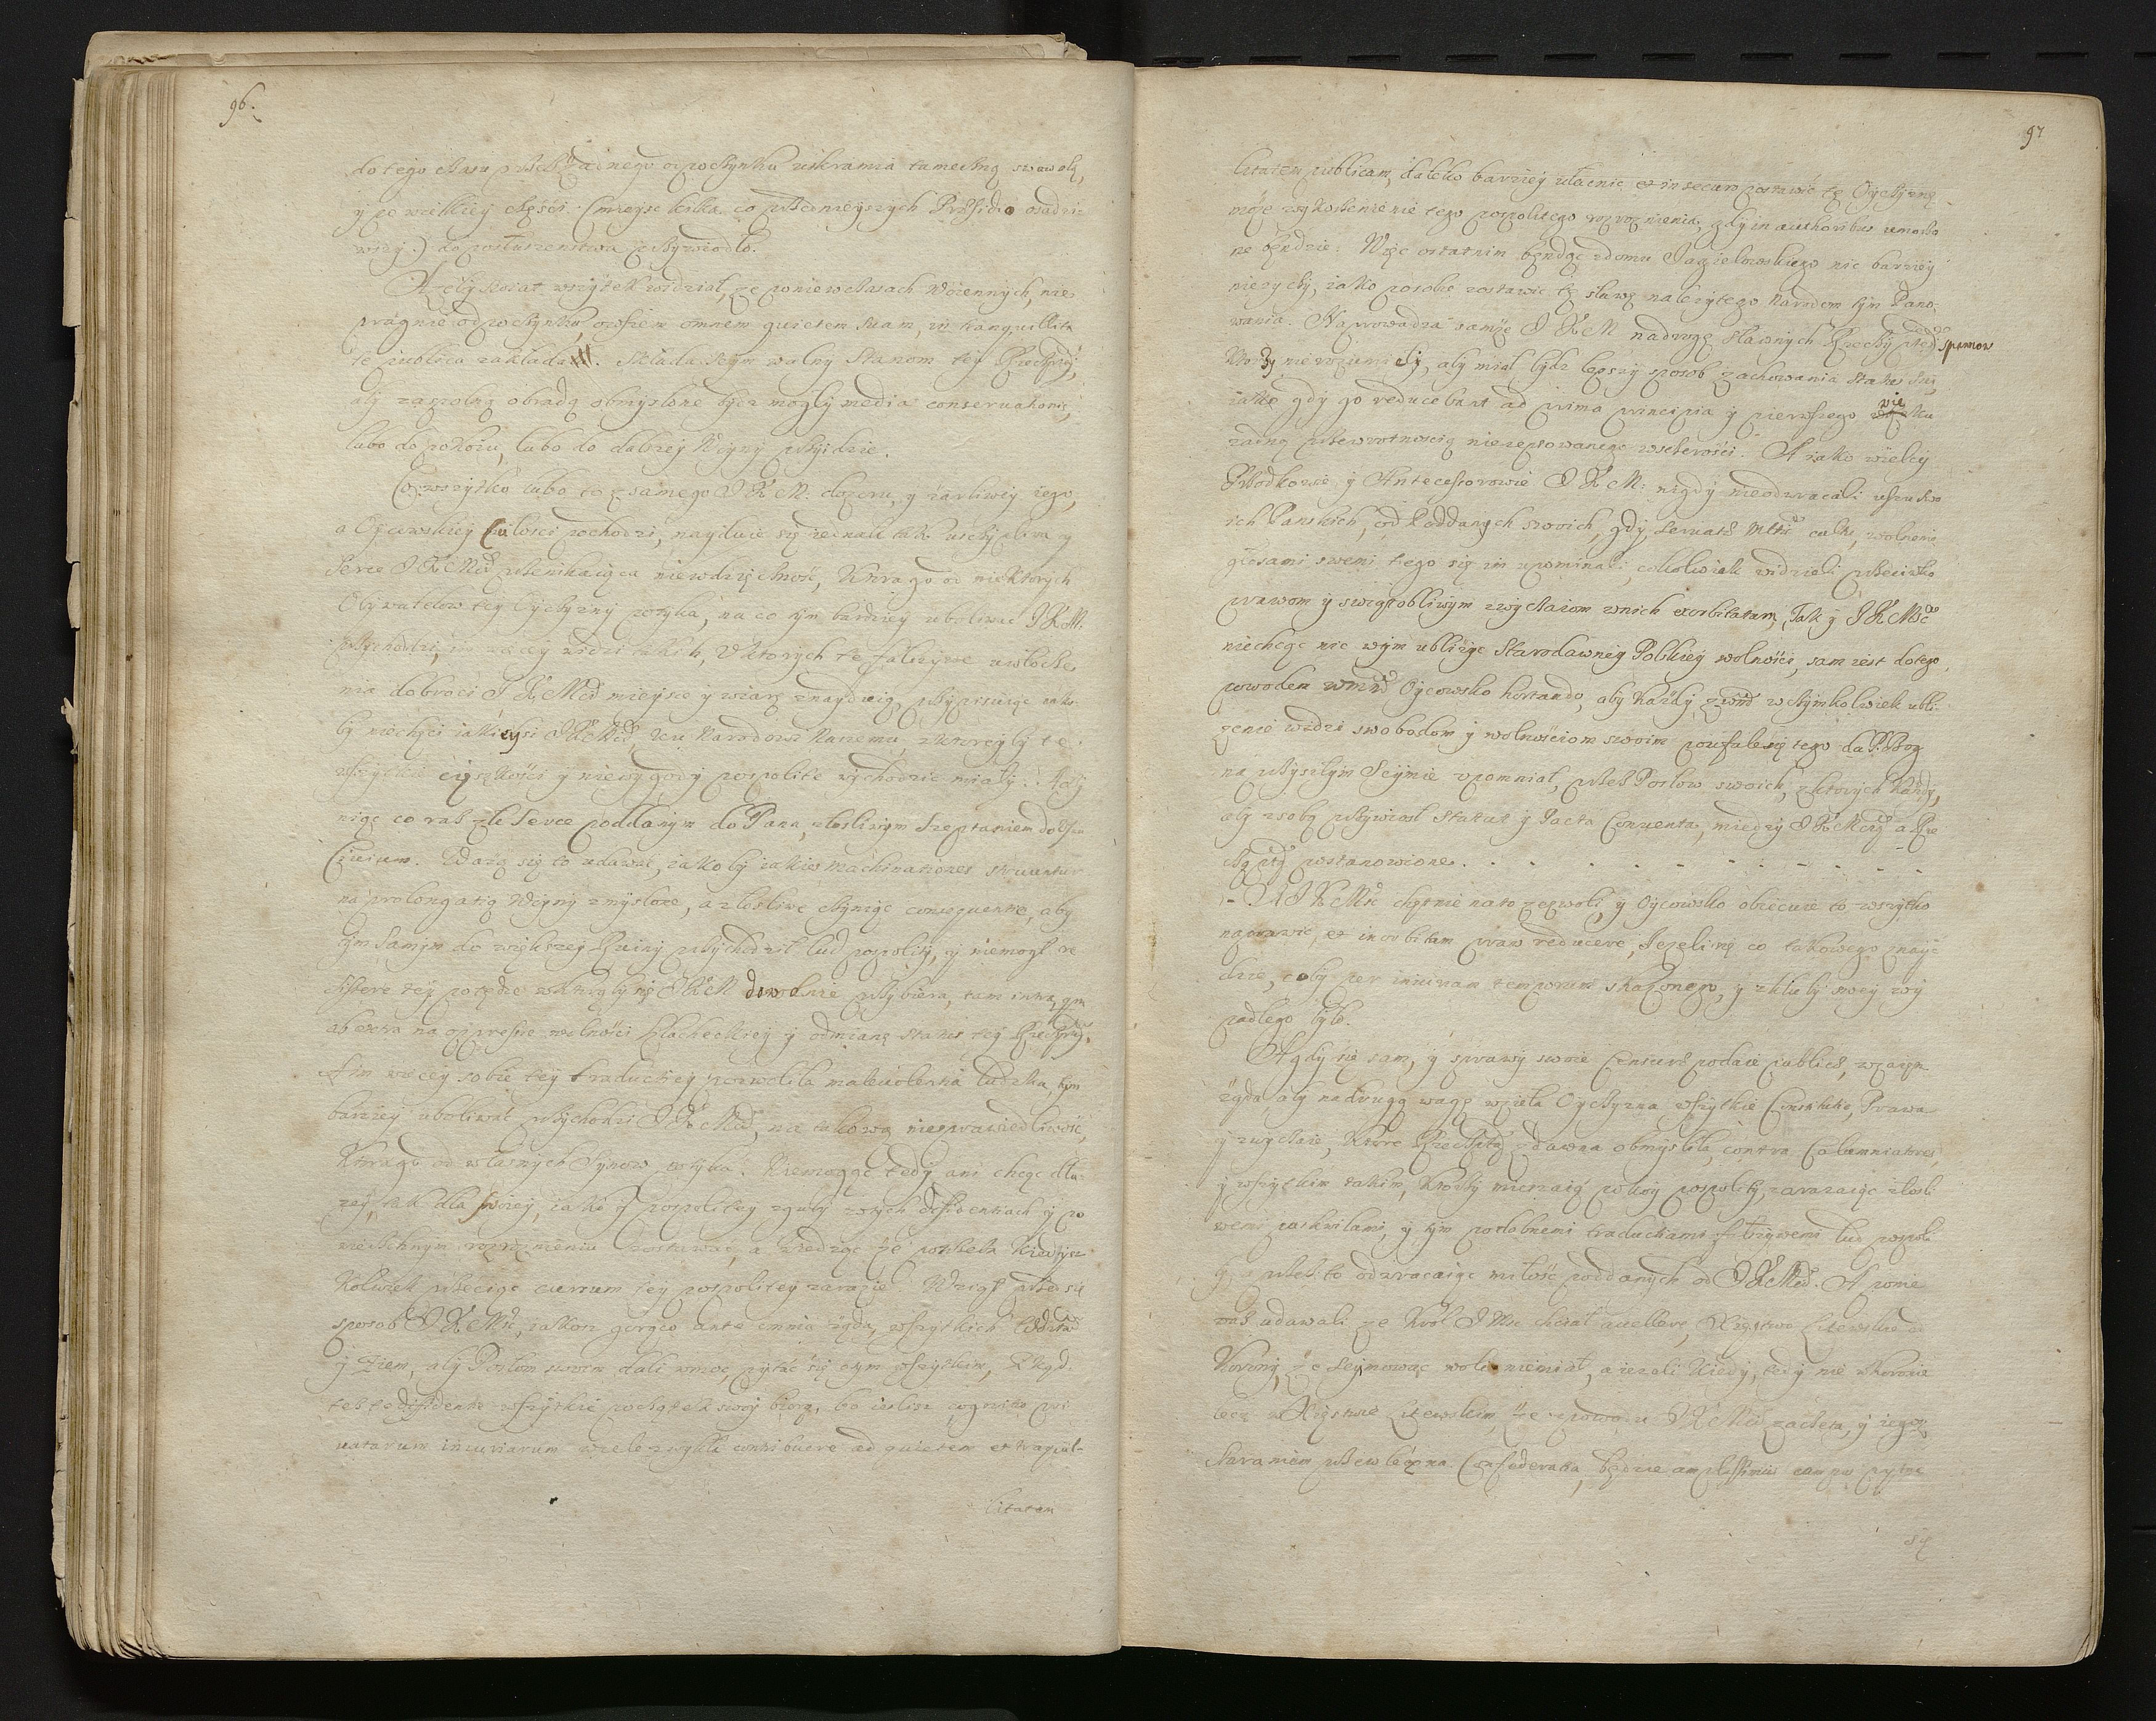 96.
do tego czasu przez żadnego odpoczynku uskramia tameczną swawolą,
y po wielkiey części (mieysc kilka co przednieyszych Præsidio osadzi-
wszy.) do posłuszenstwa przywiodło.
A żeby swiat wszytek widział, że po niewczasach Woiennych, nie
pragnie odpoczynku, owszem omnem quietem suam, in tranquillita
te publica zakłada. Składa Seym walny Stanom tey Rzeczypty,
aby zaspolną obradą obmyslone bydz mogły media conservationis,
lubo do pokoiu, lubo do dalszey Woyny przyidzie.
Co wszytko lubo to z samego J K M: dozoru, y żarliwey iego,
a Oycowskiey miłosci pochodzi, nayduie się iednak tak uszczypliwa y
serce J K Mci przenikaiąca niewdzięcznosc, ktora go od niektorych
Obywatelow tey Oyczyzny potyka, na co tym bardziey ubolewać J K M.
przychodzi, im więcey widzi takich, u ktorych te fałszywe uwłocze
nia dobroci J K Mci mieysce y wiarę znayduią, przypisuiąc iako
by niechęci iakieysi J K Mci, ku Narodowi Naszemu, z ktoreyby te
wszytkie ciężkości y niewygody pospolite wychodzic miały. Aby
niąc co raz złe serce poddanym do Pana, złosliwym szeptaniem do uszu
Civium. Ważą się to udawać, iakoby iakies machinationes struuntur
na prolongatią Woyny zmyslone, a złosliwe czyniąc consequentie, aby
tym samym do większey Ruiny przychodził lud pospolity, y niemogł re
sistere tey potędze wktorąby się J K M dowolnie przybiera, tam intra, qm
ab extra na oppressie wolności szlacheckiey y odmianę status tey Rzeczypty.
A im więcey sobie tey traductiey pozwoliła malevolentia ludzka, tym
barziey ubolewać przychodzi J K Mci, na takową niesprawiedliwość,
ktora go od własnych Synow potyka. Niemogąc tedy ani chcąc dłu-
żey, tak dla swoiey, iako y pospolitey zguby w tych diffidentiach y po
wszechnym rozroznieniu zostawać, a wiedząc że potrzeba kiedysz
kolwiek przeciąc cursum tey pospolitey zarazie. Wziął przed się
sposob J K Mć, iakosz gorąco ante omnia żąda, wszytkich Wdztw
y Ziem, aby Posłom swoim dali wmoc, pytać się o tym wszytkim, zkąd
te diffidentie wszytkie początek swoy biorą, bo ieslisz cognitio pri
vatarum iniuriarum wiele zwykła contribuere ad quietem et tranquil-
litatem
97
litatem publicam, daleko barziey ułacnic et in securo postawić tę Oyczyznę
może wykorzenienie tego pospolitego rozroznienia, gdy in authoribus umorzo
ne będzie. Więc ostatnim będąc z domu Jagiełowskiego nic barziey
nieżyczy, iako po sobie zostawic tę sławę należytego Narodom tym Pano-
wania. Naprowadza samże J K M na drogę sławnych Rzeczyptey
spraw
ktorzy nierozumieli, aby miał bydz lepszy sposob zachowania status sui,
iako gdy go reducebant ad prima principia y pierwszego wieku
żadną przewrotnością niezepsowanego szczerości. A iako wielcy
Przodkowie y Antecessorowie J K M: nigdy nieodwracali uszu
ich Panskich, od Poddanych swoich, gdy servata Mtis cultu, wolnemi
głosami swemi tego się im upominali, cokolwiek widzieli przeciwko
prawom y swiątobliwym zwyczaiom wnich exorbitatum, Tak y J K Mć
niechcąc nic wtym ubliżyc Starodawney Polskiey wolności, sam iest do tego
powodem Oycowsko hortando, aby każdy w czymkolwiek ubli-
żenie widzi swobodom y wolnościom swoim poufale się tego da P. Bog
na przyszłym Seymie upomniał, przez Posłow swoich, z ktorych każdy,
aby z sobą przywiozł Statut y Pacta Conventa, miedzy J K Mcią a Rze
cząptą postanowione.
A J K Mć chętnie nato zezwoli, y Oycowsko obiecuie to wszytko
naprawić, et in orbitam praw reducere, Jezeli się co takowego znay-
dzie, coby per iniuriam temporum skażonego, y z kluby swey wy
padłego było.
A gdy się sam, y sprawy swoie Censuræ podaie publicæ, wzaiem
żąda aby na drugą wagę wzieła Oyczyzna wszytkie Constitutie, Prawa
y zwyczaie, ktore Rzeczpta zdawna obmysliła, contra Calumniatores
y wszytkim takim, ktorzy mieszaią pokoy pospolity zarazaiąc złosli
wemi paskwilami, y tym podobnemi traductiami fałszywemi lud pospoli
ty, przez to odwracaiąc miłość poddanych od J K Mci. A ponie
waż udawali ze Krol J Mć chciał avellere, Xięstwo Litewskie od
Korony, że Seymować woli niemiał, a iezeli kiedy, tedy nie w Koronie
lecz w Xięstwie Litewskim, że z powodu J K Mci zaczęta, y iego
staraniem przewleczona Confederatia, będzie amplissimus campus pytac
się